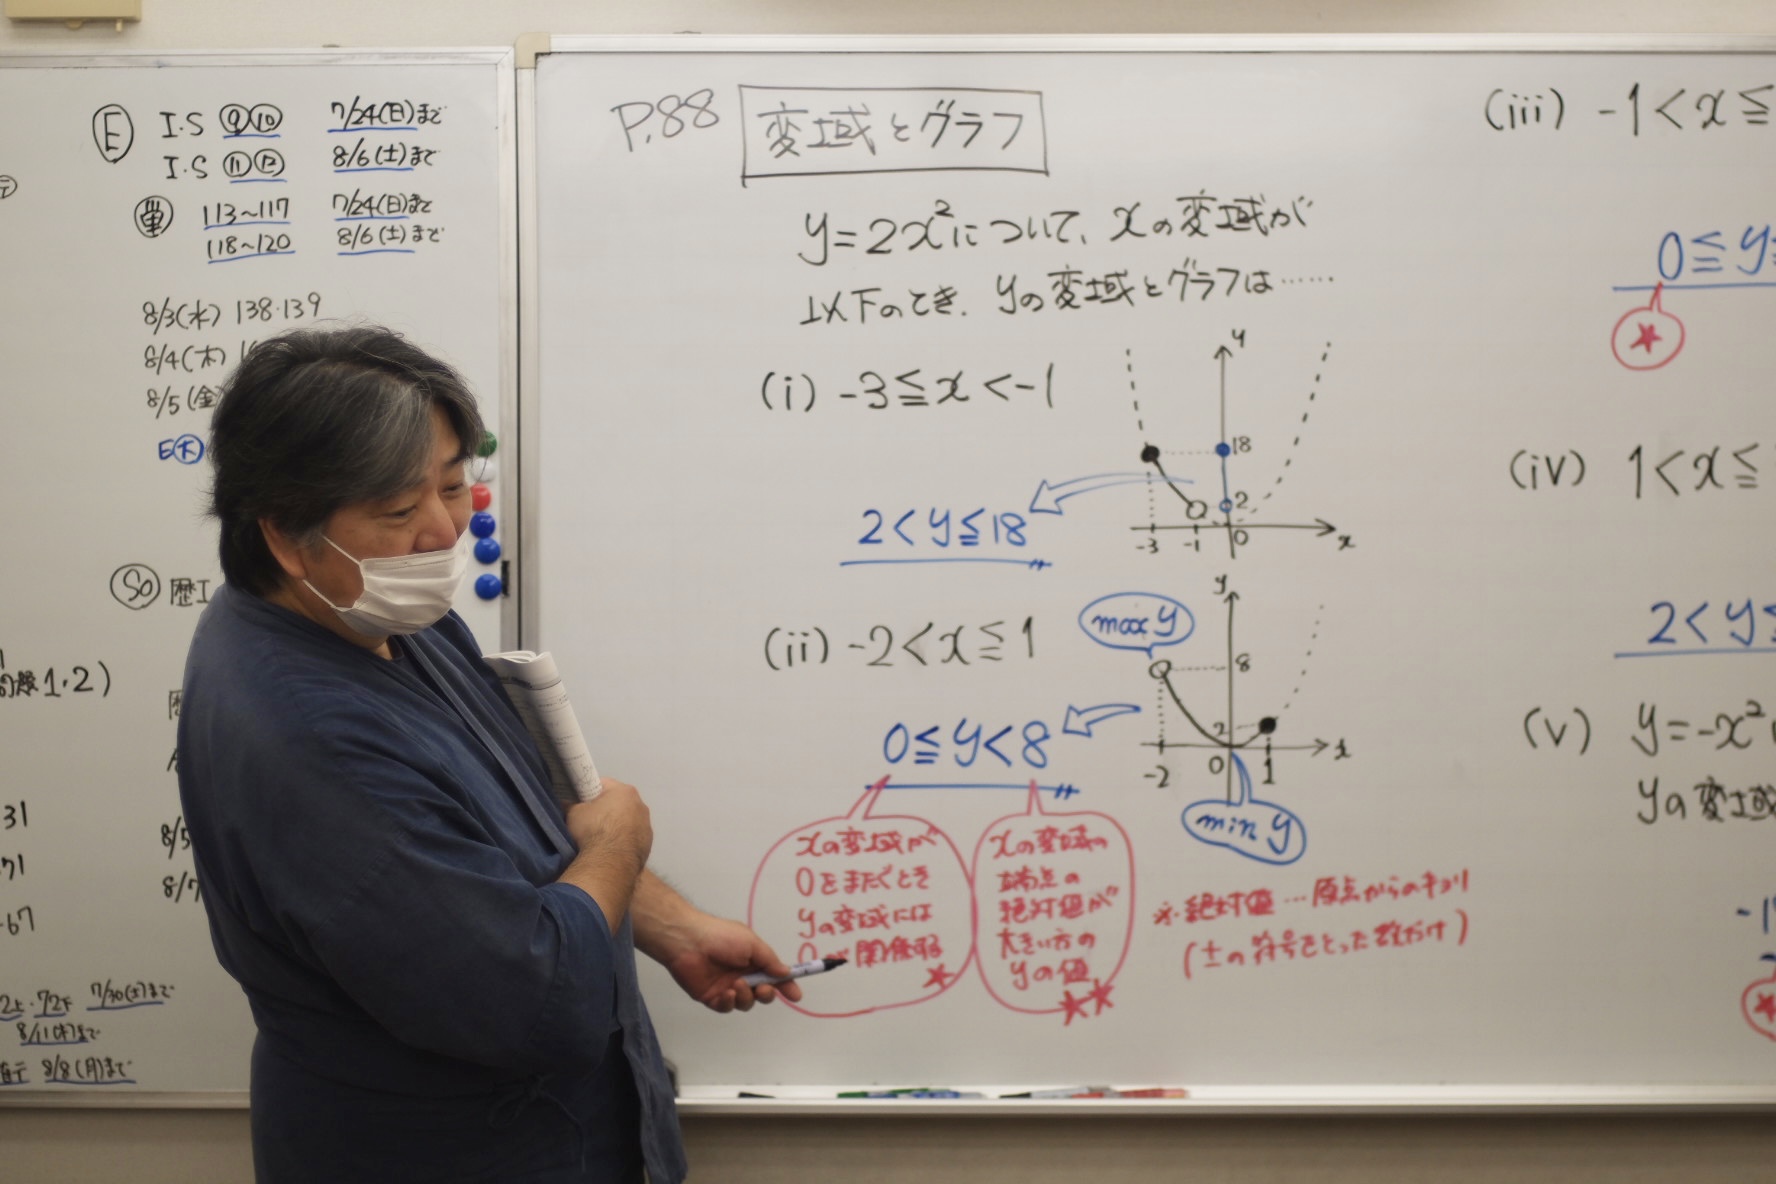 E I.S ⑨⑩ 7/24(日)まで
I.S ⑪⑫ 8/6(土)まで
単 113~117 7/24(日)まで
118~120 8/6(土)まで
8/3(水) 138・139
8/4(木)
8/5(金)
E木
So 歴
1・2)
31
71
-67
8/5
8/7
7/30(土)まで
8/11(木)まで
8/8(月)まで
P.88 変域とグラフ
y=2x²について、xの変域が
以下のとき、yの変域とグラフは……
(i) -3≦x<-1
y
18
2
-3 -1 0 x
2<y≦18
(ii) -2<x≦1
max y
y
8
2
-2 0 1 x
min y
0≦y<8
xの変域が
0をまたぐとき
yの変域には
0が関係する
xの変域の
端点の
絶対値が
大きい方の
yの値
※絶対値…原点からのキョリ
(±の符号をとった数だけ)
(iii) -1<x≦
0≦y≦
(iv) 1<x≦
2<y≦
(v) y=-x²
yの変域